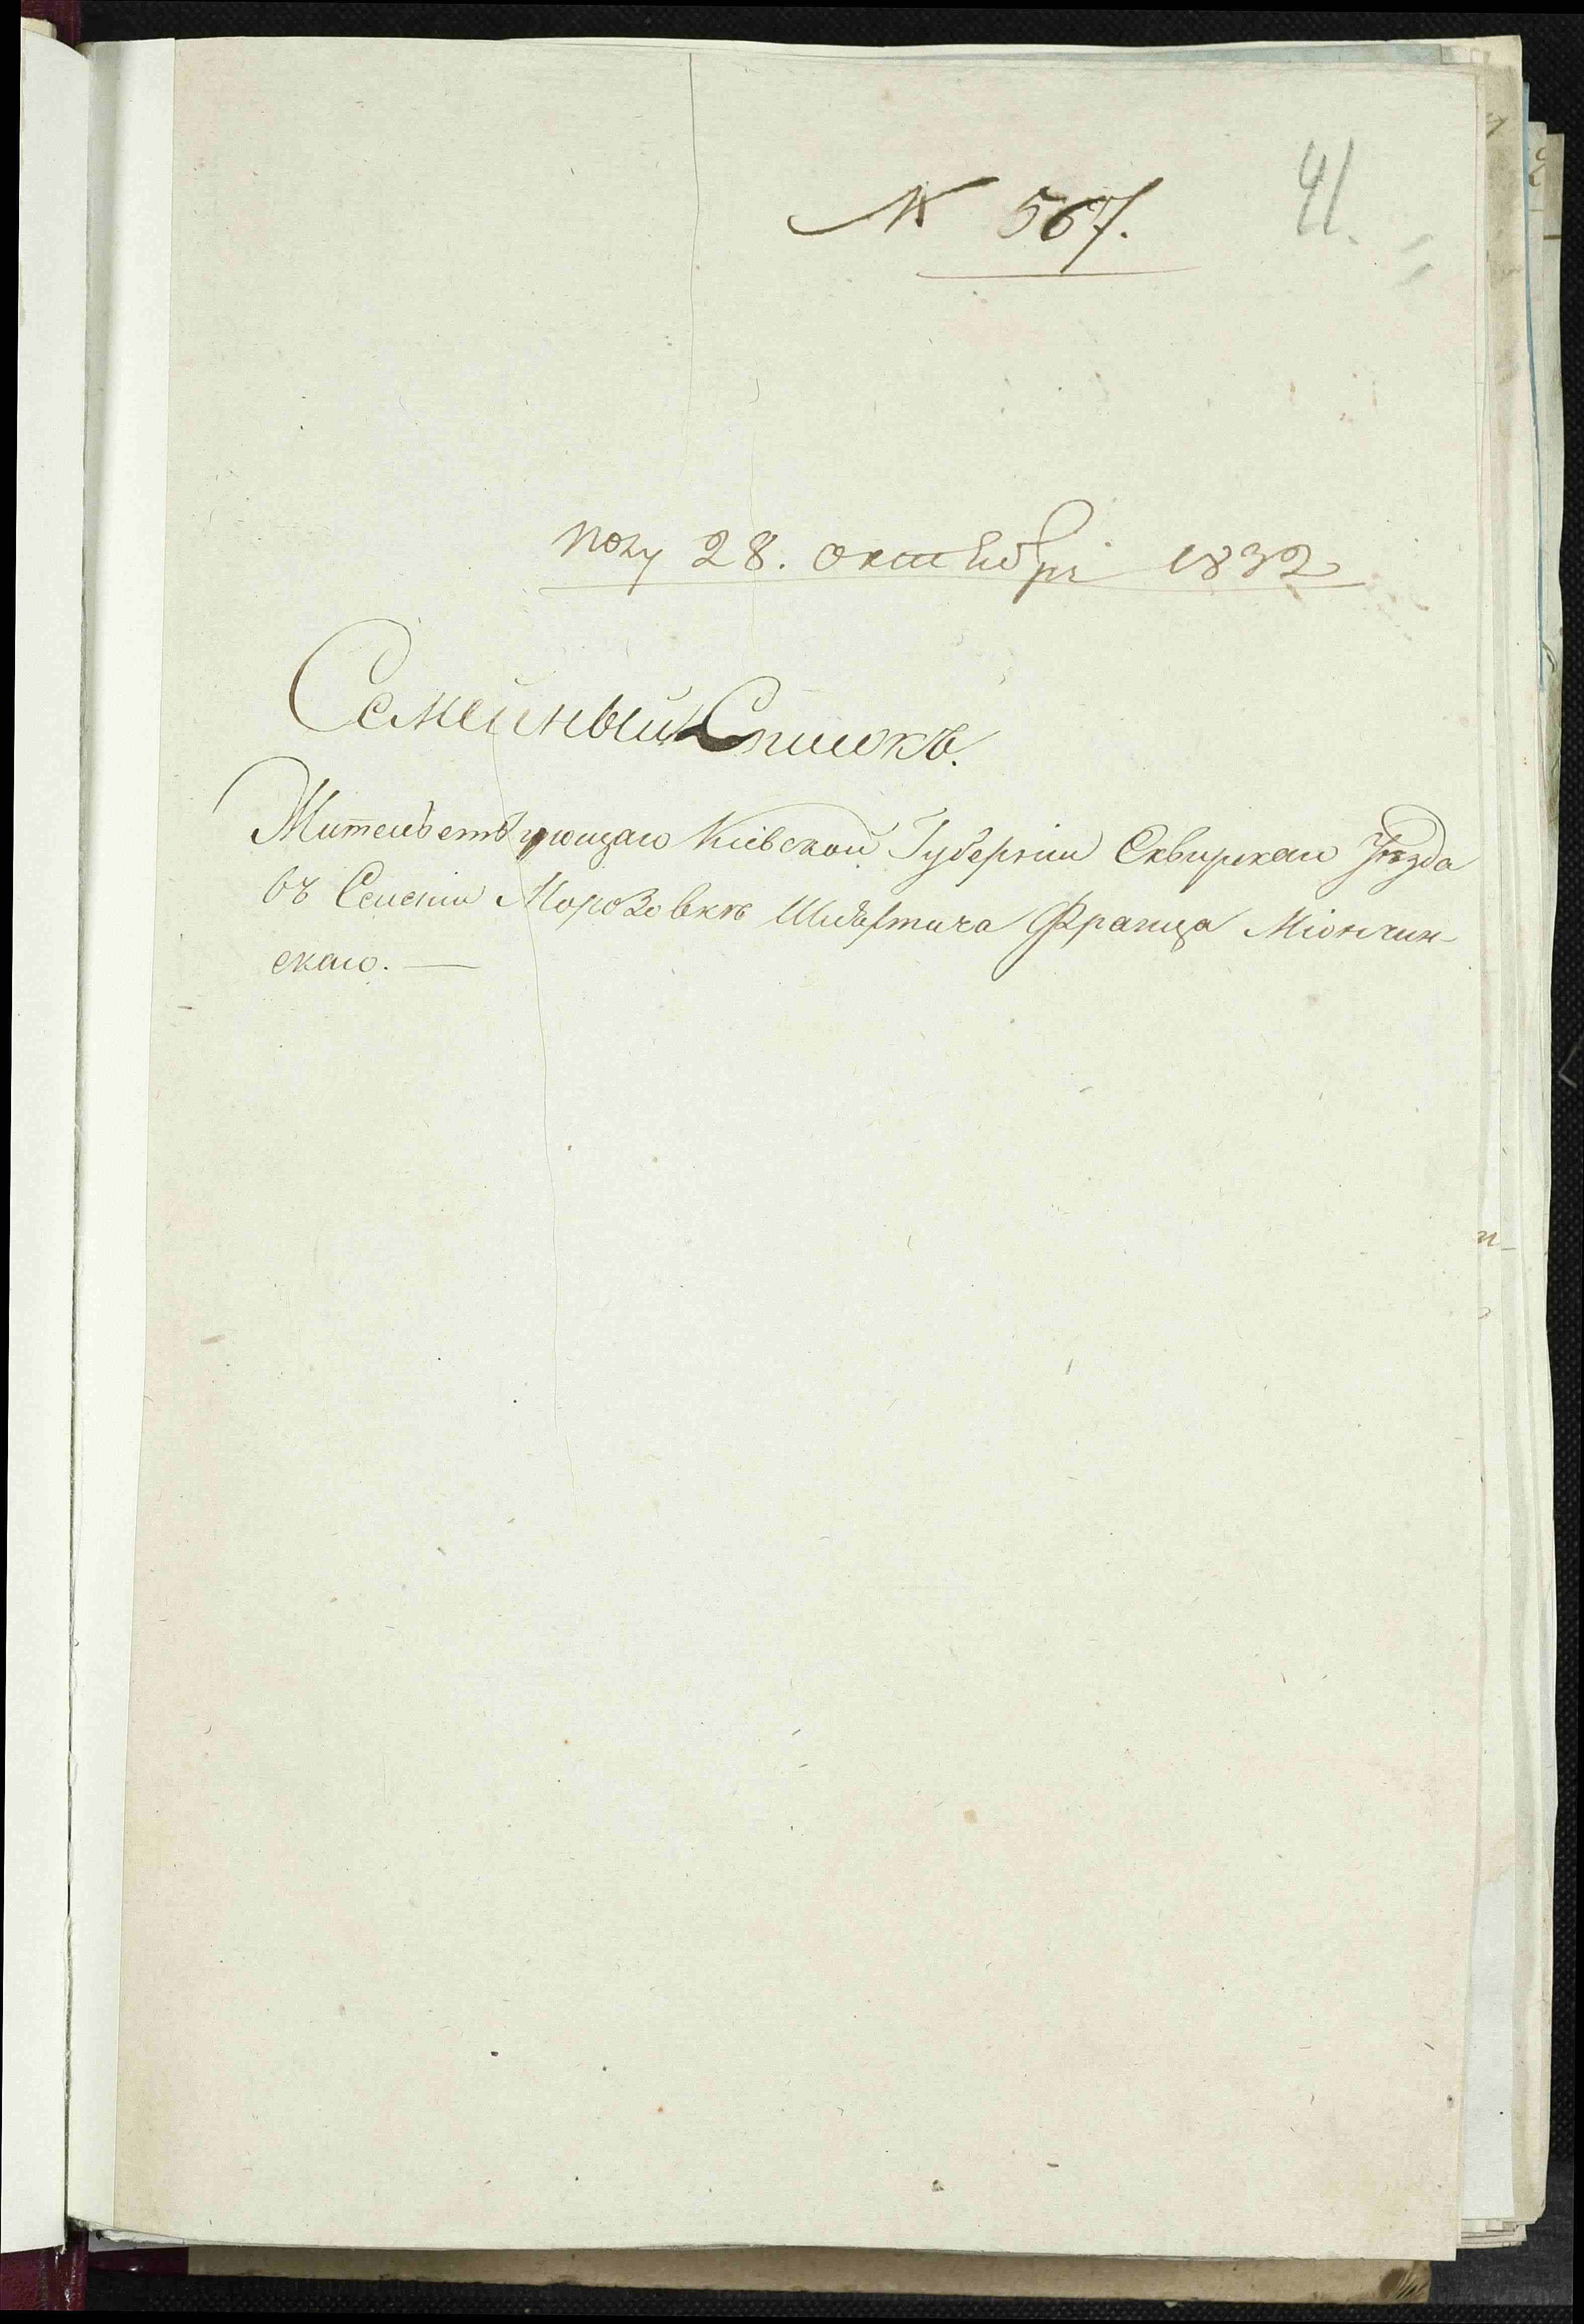 № 567.
41.
полу 28. октября 1832
Семейный Списокъ.
Жительствующаго Кіевской Губерніи Сквирскаго Уѣзда
въ Селеніи Морозовкѣ Шляхтича Франца Міончин-
скаго. —